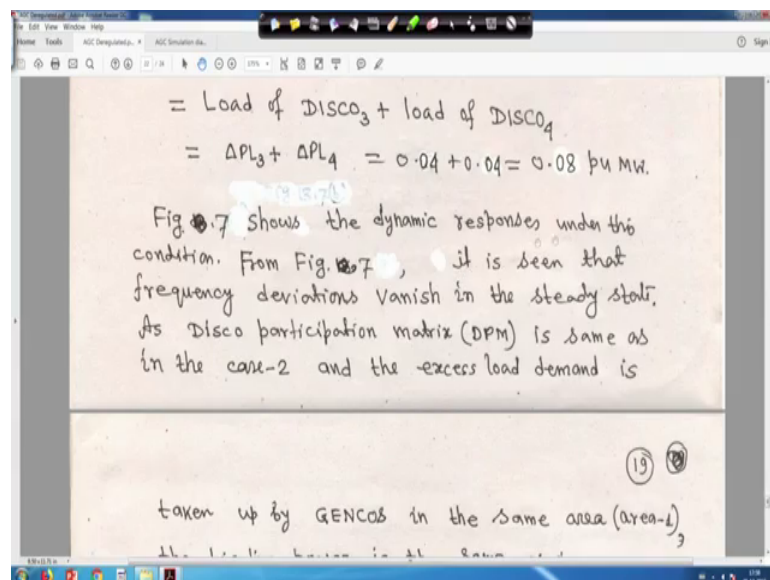 AGC Deregulated.pdf - Adobe Acrobat Reader DC
File Edit View Window Help
Home Tools AGC Deregulated.p... × AGC Simulation dia...
Sign
22 / 26 175%
= Load of DISCO3 + load of DISCO4
= ΔPL3 + ΔPL4 = 0.04 + 0.04 = 0.08 pu MW.
Fig. 7 shows the dynamic responses under this
condition. From Fig. 7 , it is seen that
frequency deviations vanish in the steady state.
As Disco participation matrix (DPM) is same as
in the case-2 and the excess load demand is
19
taken up by GENCOS in the same area (area-1),
3